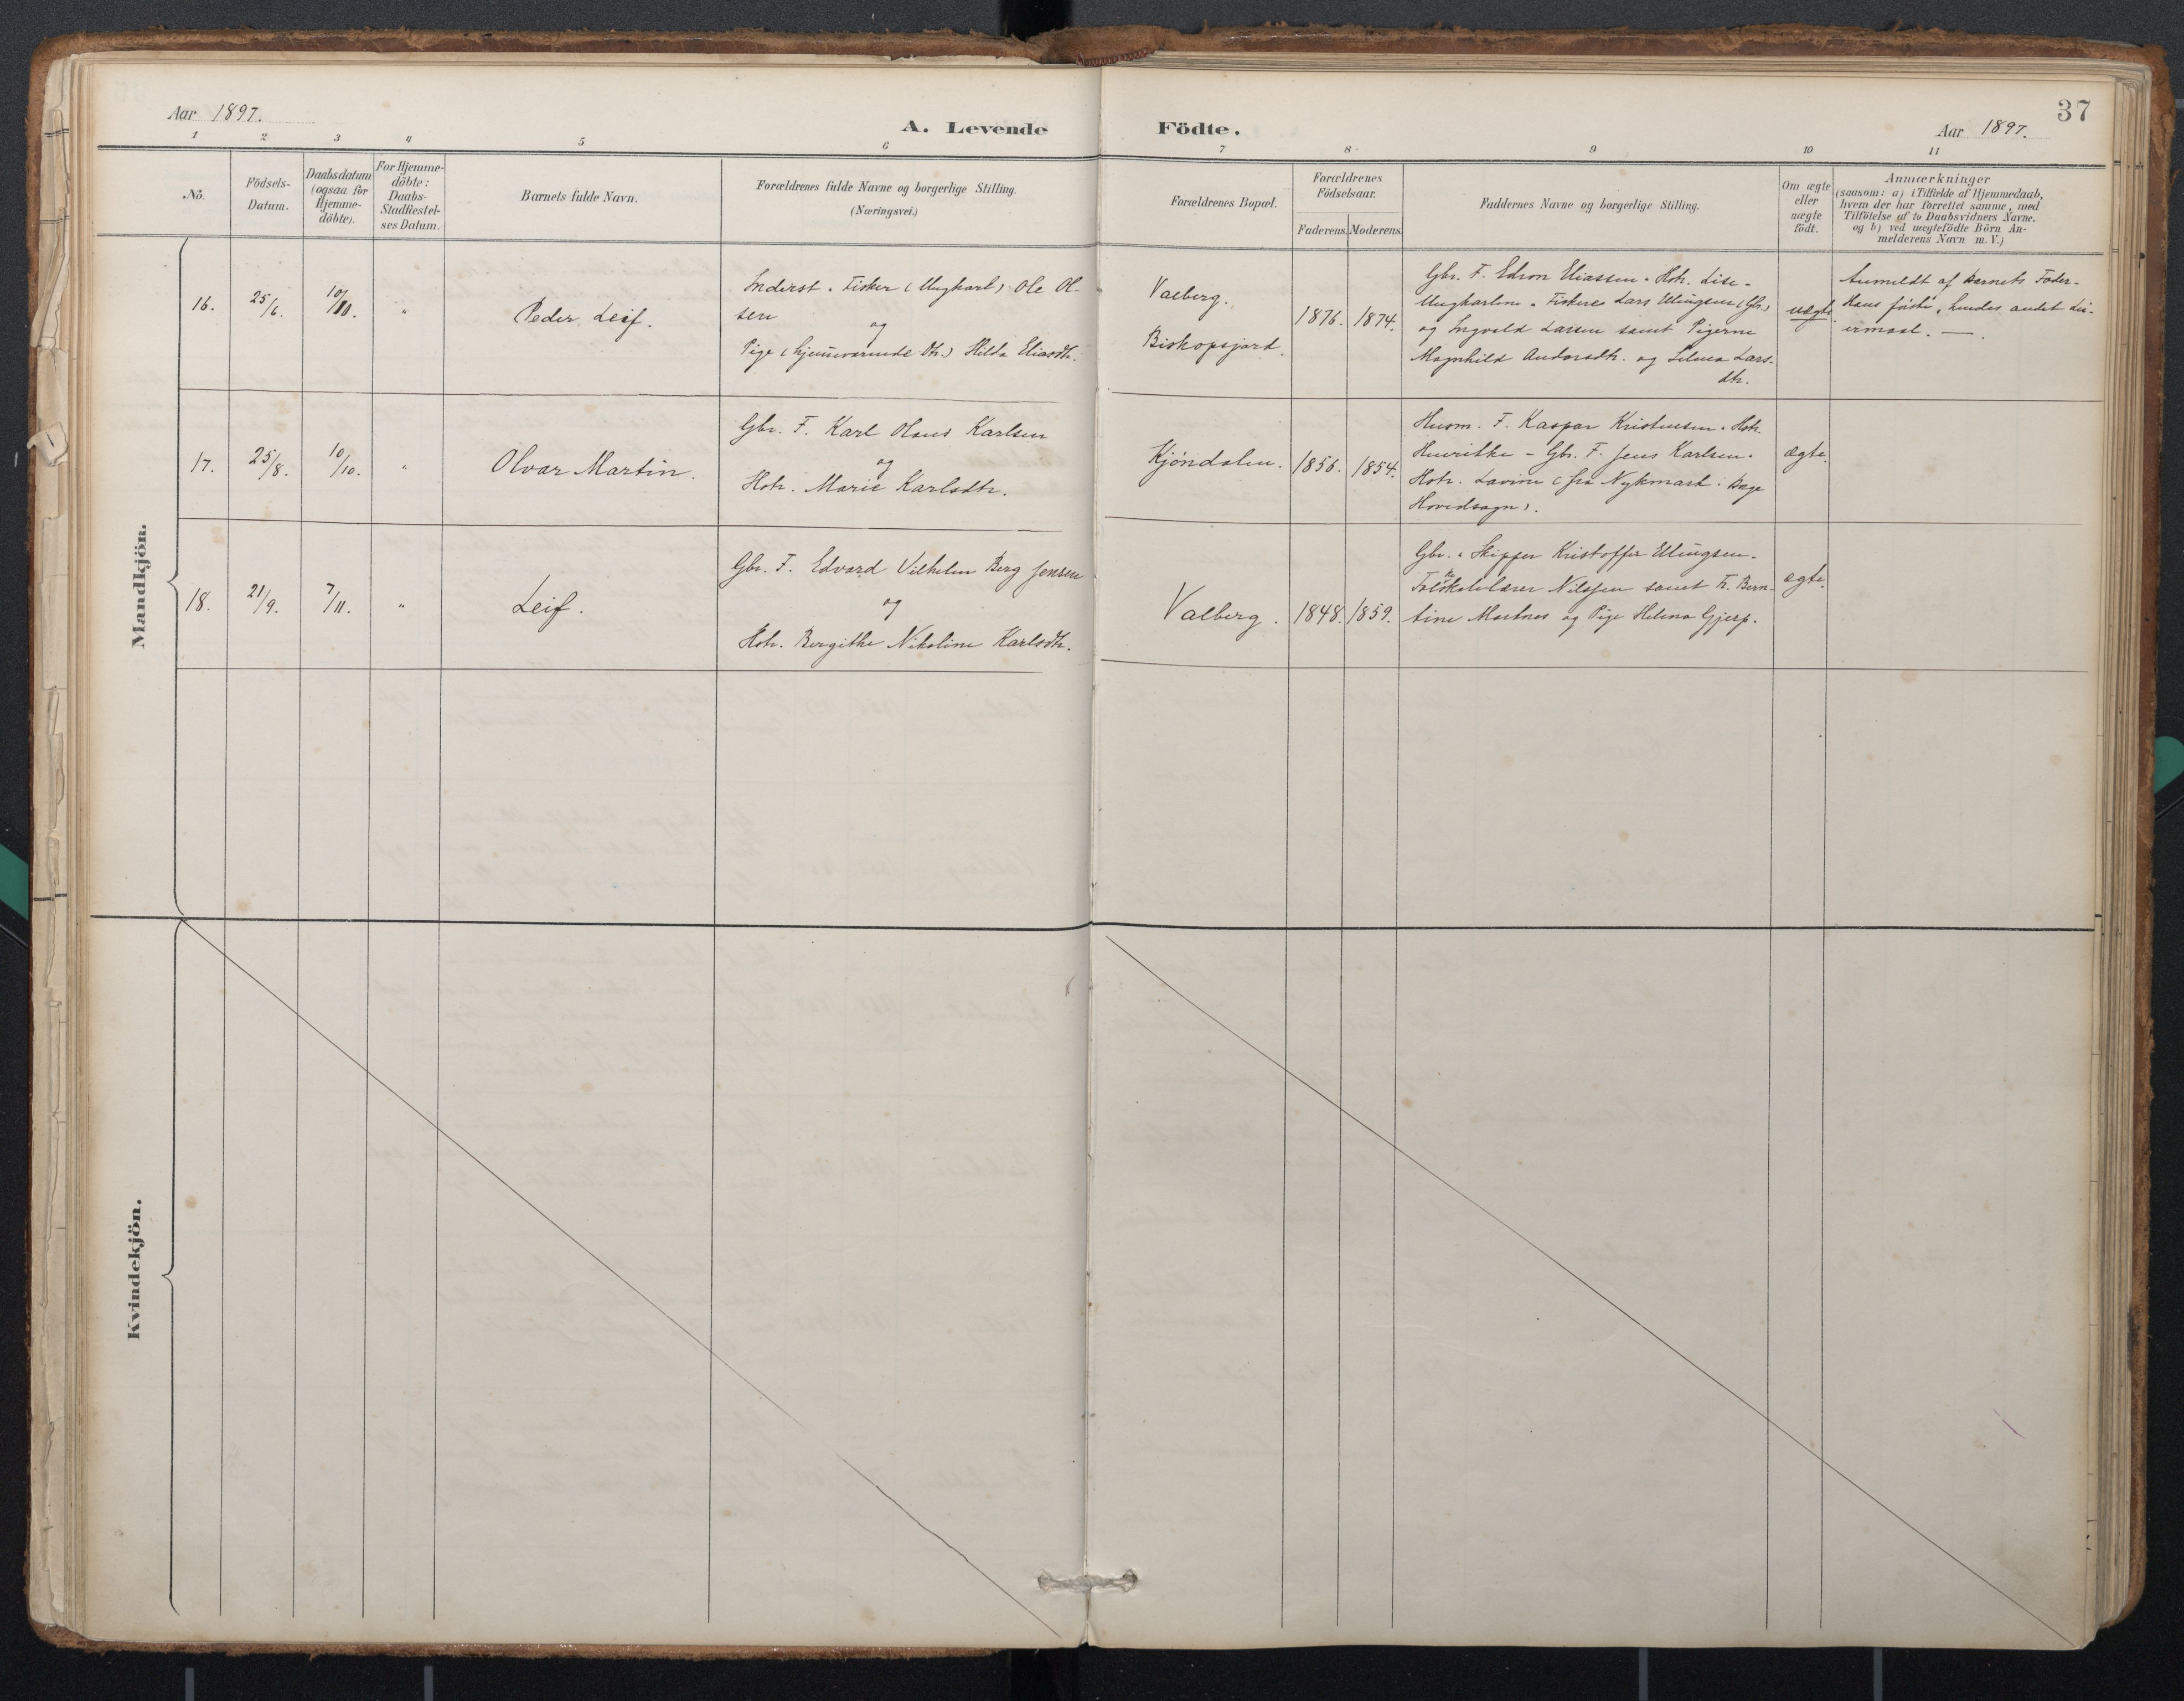 37
Aar 1897.
A. Levende Födte.
Aar 1897.
1 2 3 4 5 6 7 8 9 10 11
No.
Födsels-
Datum.
Daabsdatum
(ogsaa for
Hjemme-
döbte).
For Hjemme-
döbte:
Daabs-
Stadfæstel-
ses Datum.
Barnets fulde Navn.
Forældrenes fulde Navne og borgerlige Stilling.
(Næringsvei.)
Forældrenes Bopæl.
Forældrenes
Födselsaar.
Faderens. Moderens.
Faddernes Navne og borgerlige Stilling.
Om ægte
eller
uægte
födt.
Anmærkninger
(saasom: a) i Tilfælde af Hjemmedaab,
hvem der har forrettet samme, med
Tilföielse af to Daabsvidners Navne.
og b) ved uægtefödte Börn An-
melderens Navn m. V.)
Mandkjön.
16.
25/6.
10/10.
"
Peder Leif.
Inderst. Fisker (Ungkarl) Ole Ol-
sen
og
Pige (hjemmeværende Dtr.) Hilda Eliasdtr.
Valberg.
Biskopsjord.
1876.
1874.
Gbr. F. Edron Eliassen. Hstr. Lise-
Ungkarlene. Fiskere Lars Ellingsen (Gbr.)
og Ingvald Larsen samt Pigerne
Magnhild Andorsdtr. og Selma Lars-
dtr.
uægte.
Anmeldt af Barnets Fader.
Hans förste, hendes andet Lei-
ermaal. —
17.
25/8.
10/10.
"
Olvar Martin.
Gbr. F. Karl Olaus Karlsen
og
Hstr. Marie Karlsdtr.
Kjöndalen.
1856.
1854.
Husm. F. Kaspar Kristensen. Hstr.
Henrikke - Gbr. F. Jens Karlsen.
Hstr. Lavine (fra Nykmark i Borge
Hovedsogn).
ægte.
18.
21/9.
7/11.
"
Leif.
Gbr. F. Edvard Vilhelm Berg Jensen
og
Hstr. Bergithe Nikoline Karlsdtr.
Valberg.
1848.
1859.
Gbr. . Skipper Kristoffer Ellingsen.
Folkeskolelærer Nilssen samt Fr. Bern-
tine Mortnes og Pige Helena Gjerp.
ægte.
Kvindekjön.